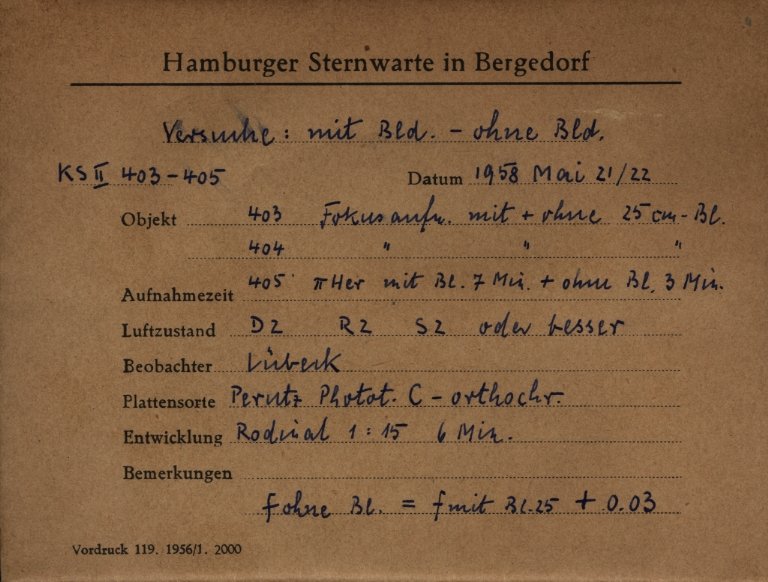 Hamburger Sternwarte in Bergedorf
Versuche: mit Bld. - ohne Bld.
KS II 403-405 Datum 1958 Mai 21/22
Objekt 403 Fokusaufn. mit + ohne 25 cm-Bl.
404 " " "
Aufnahmezeit 405 π Her mit Bl. 7 Min. + ohne Bl. 3 Min.
Luftzustand D2 R2 S2 oder besser
Beobachter Lübeck
Plattensorte Perutz Photot. C - orthochr.
Entwicklung Rodinal 1:15 6 Min.
Bemerkungen
f ohne Bl. = f mit Bl.25 + 0.03
Vordruck 119. 1956/1. 2000